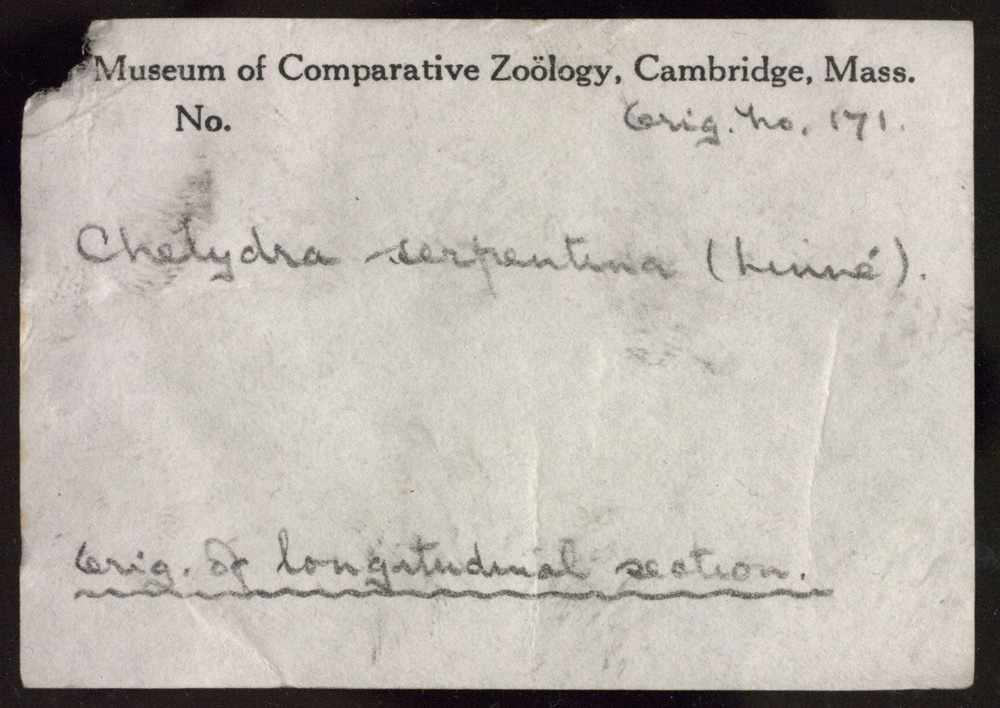 Museum of Comparative Zoölogy, Cambridge, Mass.
No. Orig. No. 171.
Chelydra serpentina (Linné).
Orig. of longitudinal section.